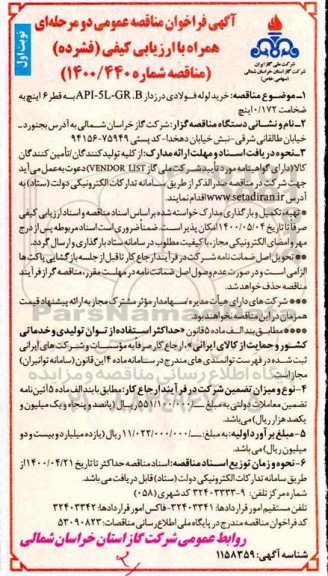 آگهی فراخوان مناقصه عمومی دو مرحله‌ای
همراه با ارزیابی کیفی (فشرده)
(مناقصه شماره ۱۴۰۰/۴۴۰)
نوبت اول
شرکت ملی گاز ایران
شرکت گاز استان خراسان شمالی
(سهامی خاص)
۱-موضوع مناقصه: خرید لوله فولادی درزدار API-5L-GR.B به قطر ۶ اینچ به
ضخامت ۰/۱۷۲ اینچ
۲-نام و نشانی دستگاه مناقصه گزار: شرکت گاز خراسان شمالی به آدرس بجنورد-
خیابان طالقانی شرقی-نبش خیابان دهخدا- کد پستی ۷۵۹۴۹-۹۴۱۵۶
۳-نحوه دریافت اسناد و مهلت ارائه مدارک: از کلیه تولیدکنندگان/تأمین کنندگان
کالا (دارای گواهینامه مورد تأیید شرکت ملی گاز (VENDOR LIST) دعوت به عمل می آید
جهت شرکت در مناقصه صدرالذکر از طریق سامانه تدارکات الکترونیکی دولت (ستاد) به
آدرس www.setadiran.ir اقدام نمایند.
*تهیه، تکمیل و بارگذاری مدارک خواسته شده بر اساس اسناد مناقصه و اسناد ارزیابی کیفی
صرفاً تا تاریخ ۱۴۰۰/۰۵/۰۴ امکان پذیر است. ضمناً ضروری است اسناد مربوطه پس از درج
مهر و امضای الکترونیکی مجاز، با کیفیت مطلوب در سامانه ستاد بارگذاری و ارسال گردد.
**تحویل اصل ضمانت نامه شرکت در فرآیند ارجاع کار تا قبل از جلسه بازگشایی پاکت ها
الزامی است و در صورت عدم وصول اصل ضمانت نامه در مهلت مقرر، مناقصه گر از فرآیند
مناقصه حذف خواهد شد.
***شرکت های دارای هیأت مدیره/سهامدار مؤثر مشترک مجاز به ارائه پیشنهاد قیمت
همزمان در این مناقصه نخواهند بود.
****مطابق بند الف ماده ۵ قانون «حداکثر استفاده از توان تولیدی و خدماتی
کشور و حمایت از کالای ایرانی»، ارجاع کار صرفاً به مؤسسات و شرکت های ایرانی
ثبت شده در فهرست توانمندی های مندرج در سامانه ماده ۴ این قانون (سامانه توانیران)
مجاز است.
۴-نوع و میزان تضمین شرکت در فرآیند ارجاع کار: مطابق با بند الف ماده ۵ آئین نامه
تضمین معاملات دولتی به مبلغ ۵۵۱/۰۰۰/۰۰۰ ریال (پانصد و پنجاه و یک میلیون و
یکصد هزار ریال) می باشد.
۵-مبلغ برآورد اولیه: به مبلغ ۱۱/۰۲۲/۰۰۰/۰۰۰ ریال (یازده میلیارد و بیست و دو
میلیون ریال) می باشد.
۶-نحوه و زمان توزیع اسناد مناقصه: اسناد مناقصه حداکثر تا تاریخ ۱۴۰۰/۰۴/۲۱ از
طریق سامانه تدارکات الکترونیکی دولت (ستاد) قابل دریافت می باشد.
شماره مرکز تلفن ۹-۳۲۴۰۳۲۳۳ کد شهری (۰۵۸)
تلفن مستقیم امور قراردادها: ۳۲۴۰۳۳۴۱-فاکس امور قراردادها: ۳۲۴۰۳۳۴۲
کد فراخوان مناقصه مندرج در پایگاه ملی اطلاع رسانی مناقصات: ۵۳۰۹۰۸۲۳
روابط عمومی شرکت گاز استان خراسان شمالی
شناسه آگهی: ۱۱۵۸۳۵۹